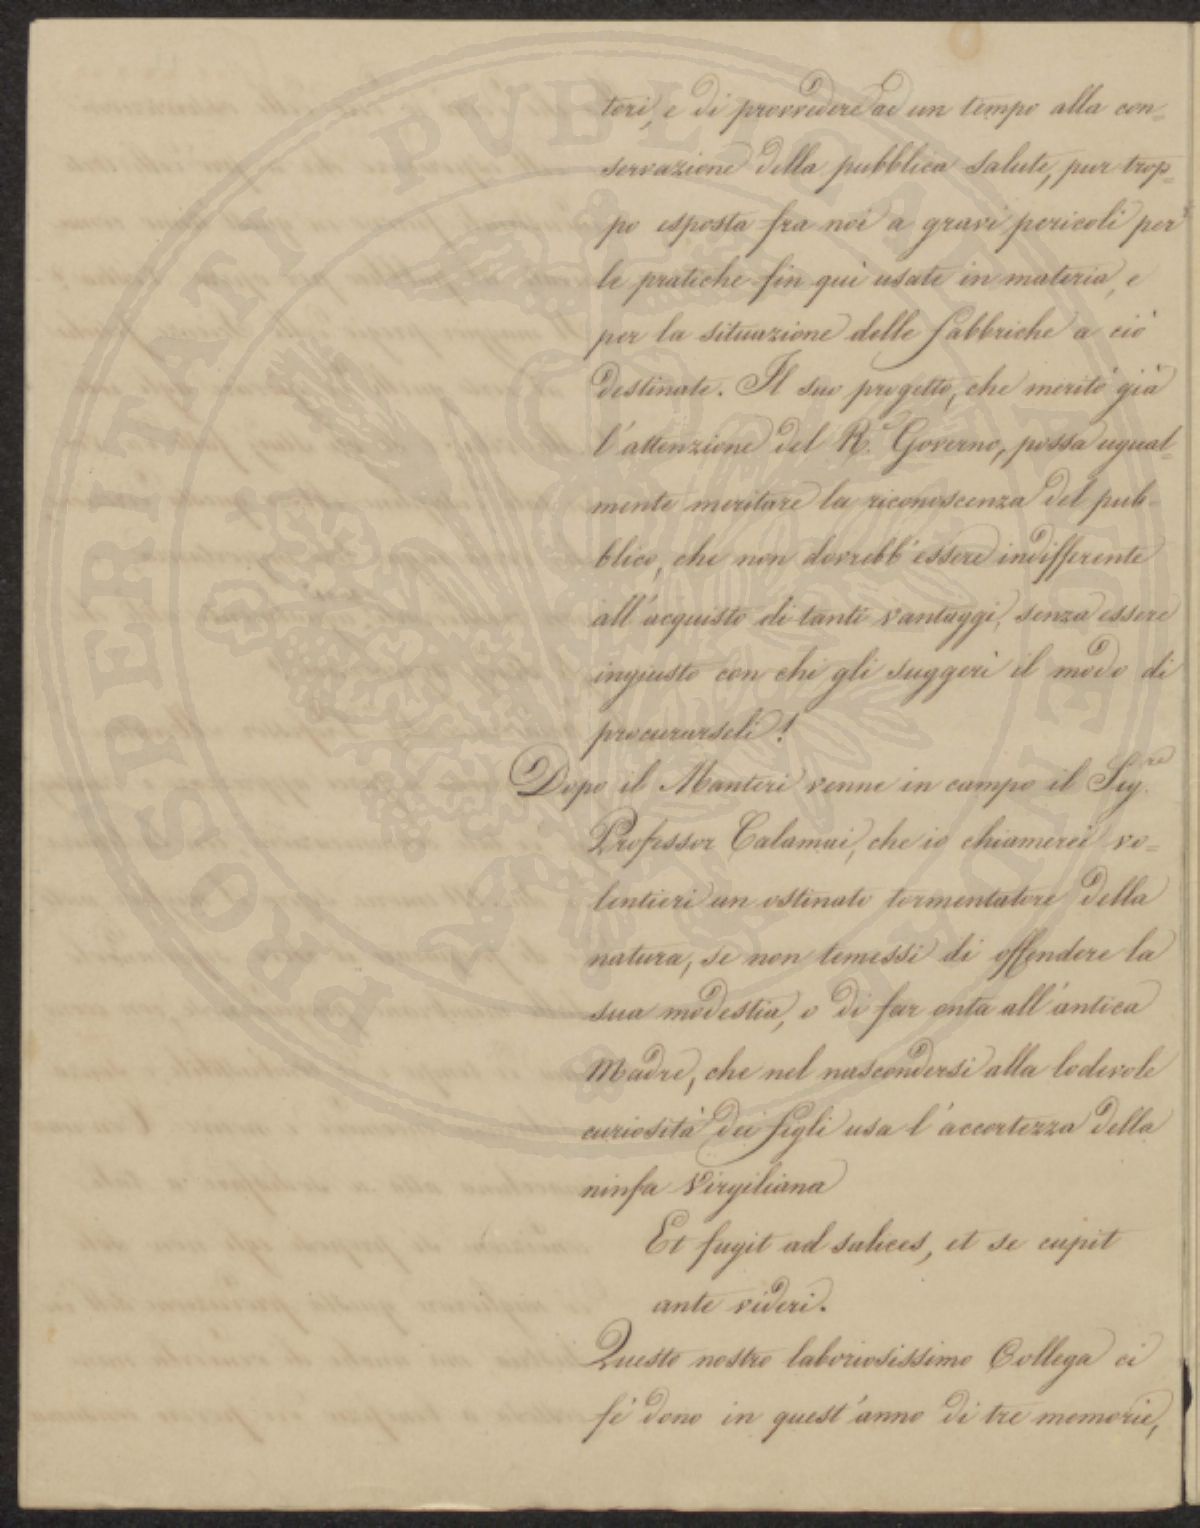 tori, e di provvedere ad un tempo alla con=
servazione della pubblica salute, pur trop=
po esposta fra noi a gravi pericoli per
le pratiche fin quì usate in materia, e
per la situazione delle fabbriche a ciò
destinate. Il suo progetto, che meritò già
l'attenzione del R.º Governo, possa ugual=
mente meritare la riconoscenza del pub-
blico, che non dovrebb'essere indifferente
all'acquisto di tanti vantaggi, senza essere
ingiusto con chi gli suggerì il modo di
procurarseli!
Dopo il Manteri venne in campo il Sig.re
Professor Calamai, che io chiamerei vo=
lentieri un ostinato tormentatore della
natura, se non temessi di offendere la
sua modestia, o di far onta all'antica
Madre, che nel nascondersi alla lodevole
curiosità dei figli usa l'accortezza della
ninfa Virgiliana
Et fugit ad salices, et se cupit
ante videri.
Questo nostro laboriosissimo Collega ci
fè dono in quest'anno di tre memorie,
PROSPERITATI PUBLICAE AUGENDAE